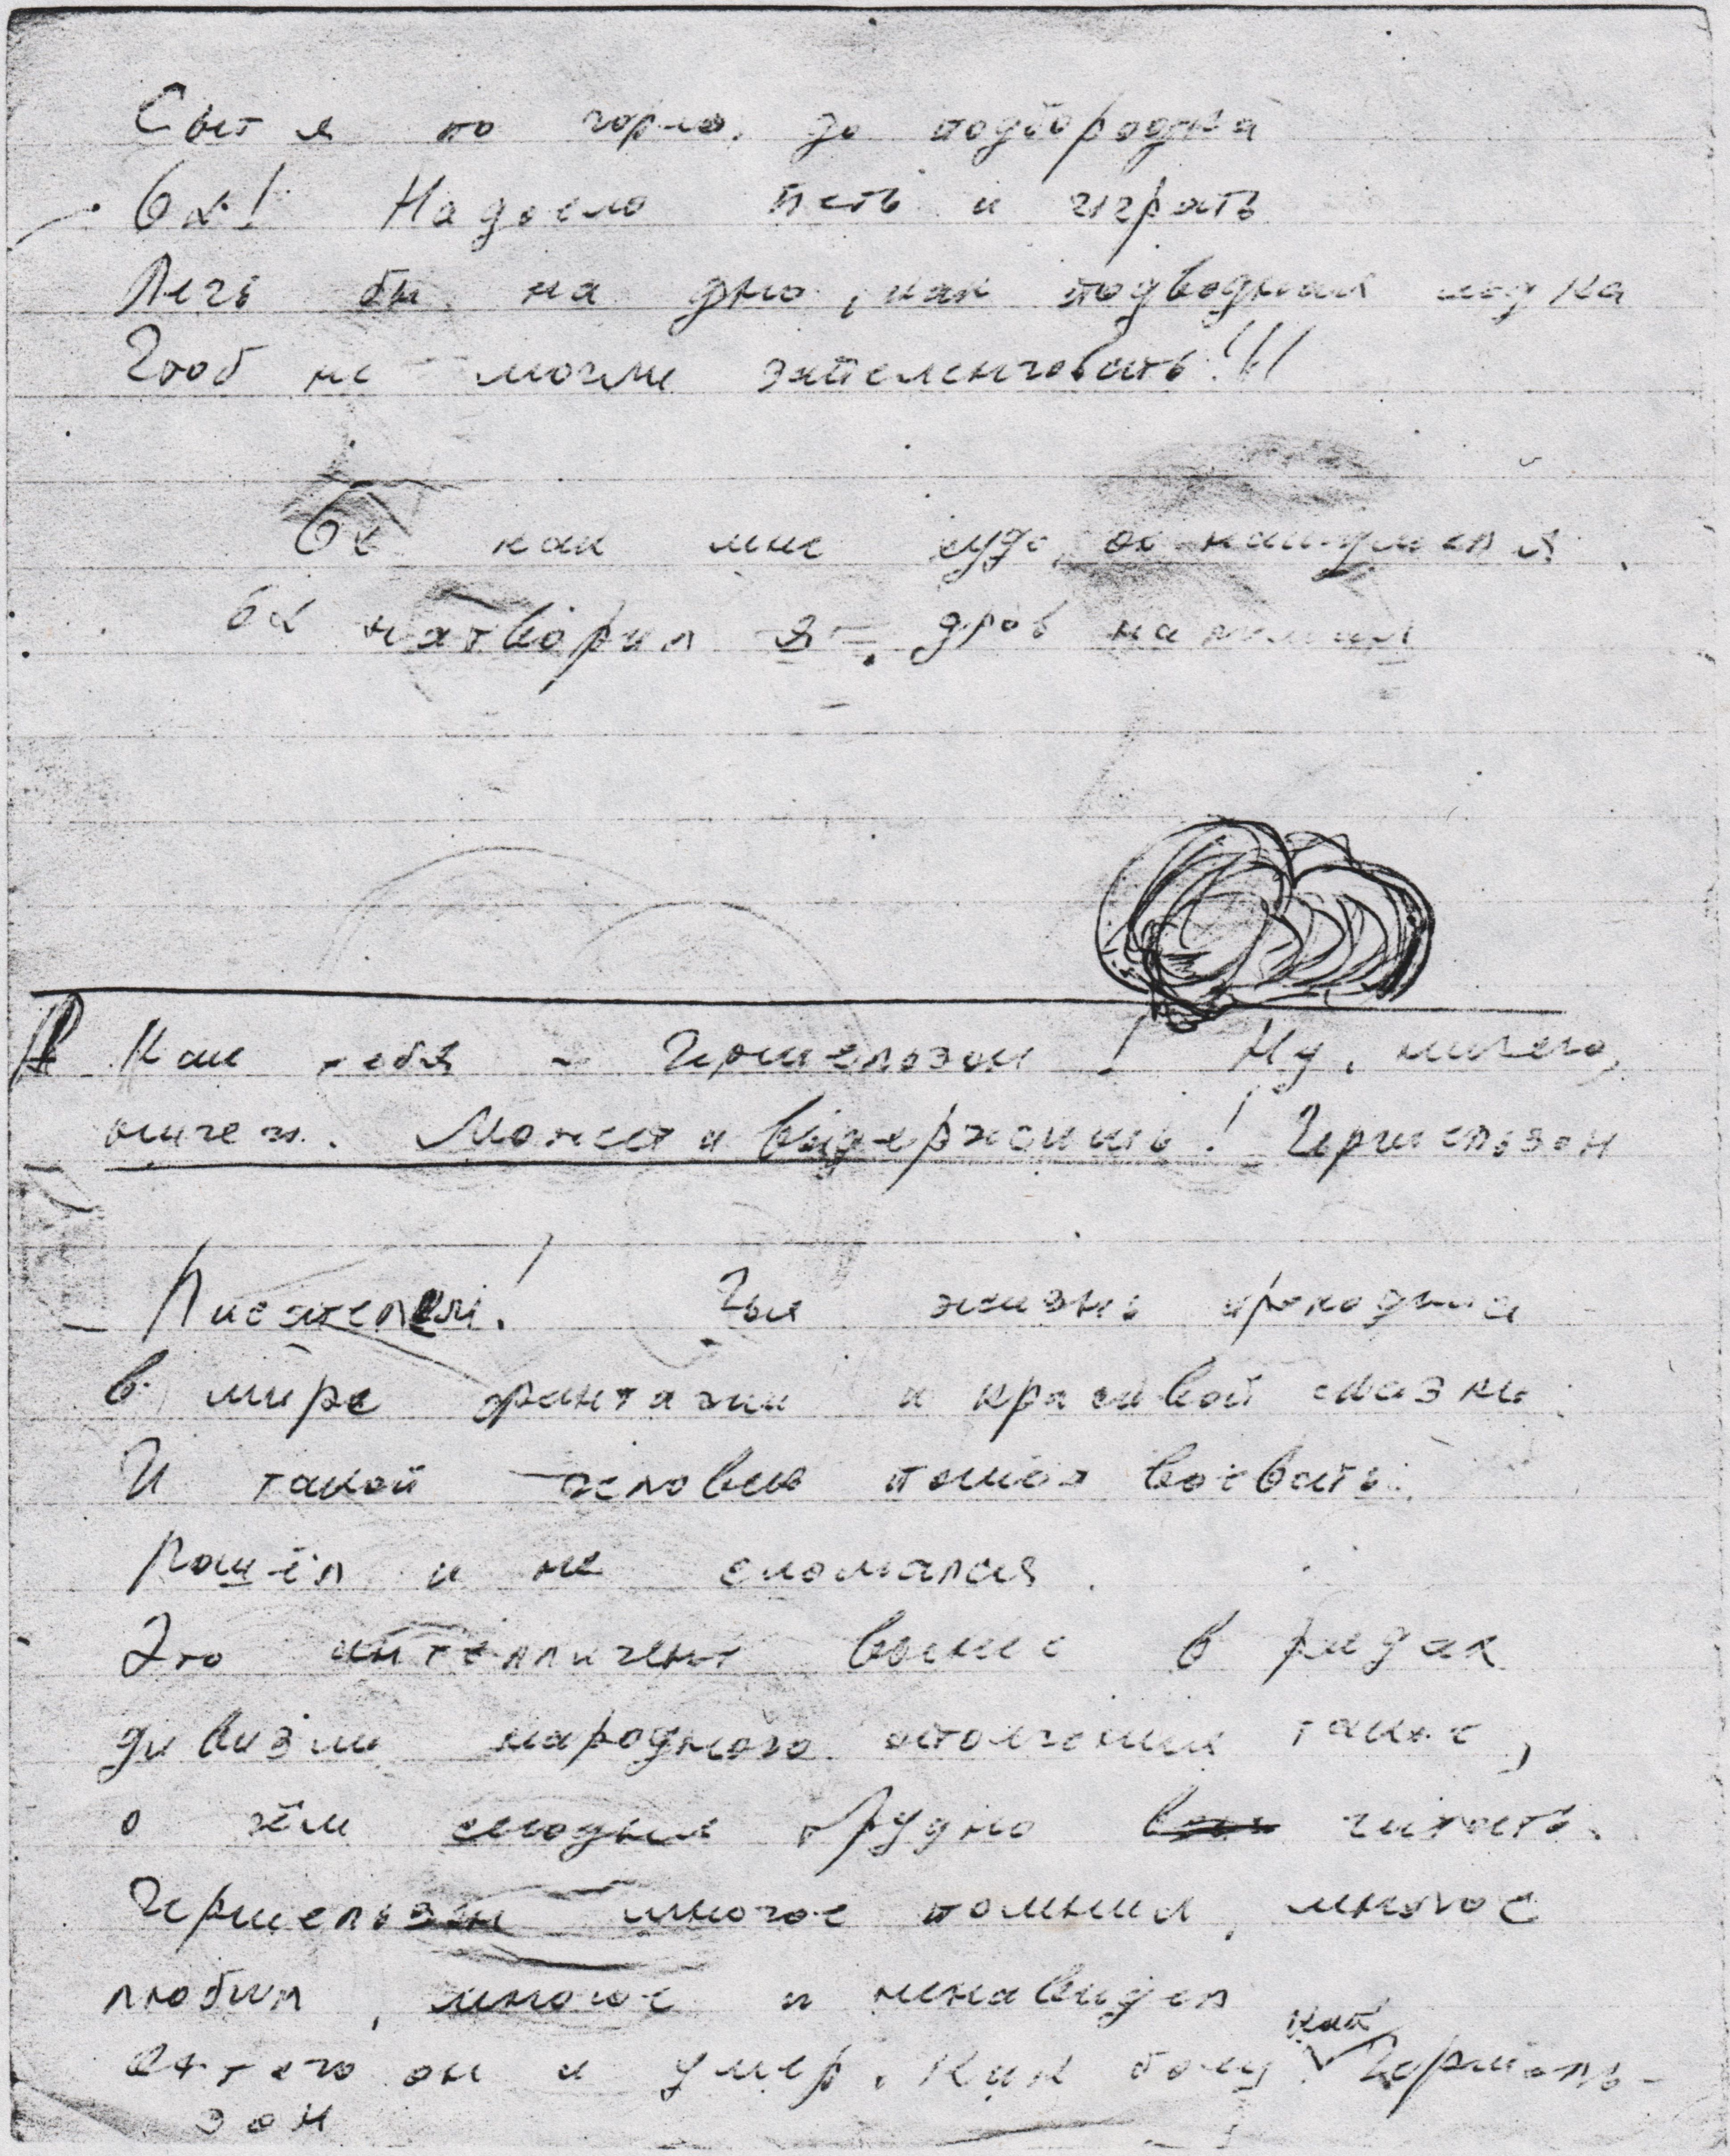 Сыт я по горло, до подбородка
Ох! Надоело петь и играть
Лечь бы на дно, как подводная лодка
Чтоб не могли запеленговать!!!
Ох как мне худо, ох
Ох натворил я дров наломил
Как тебя - Гершельзон! Ну, ничего,
ничего. Может и выдержишь! Гершельзон
Писателем! Чья жизнь проходила
в мире фантазии и красивой сказки.
И такой человек пошёл воевать.
Пошёл и не сломался.
Это интеллигент вынес в рядах
дивизии народного ополчения такое,
о чём сегодня трудно читать.
Гершельзон многое помнил, многое
любил, многое и ненавидел
От того он и умер. Как
Гершель-
зон